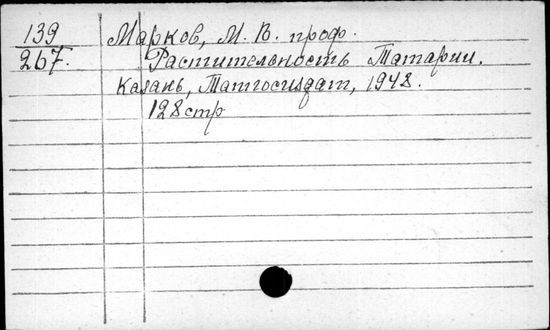 139 Марков, М. В. проф.
267. Растительность Татарии.
Казань, Татгосиздат, 1948.
128 стр